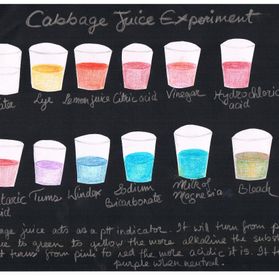 Cabbage Juice Experiment
Lye Lemon juice Citric acid Vinegar Hydrochloric
acid
Tums Windex Sodium Milk of Bleach
Bicarbonate Magnesia
juice acts as a pH indicator. It will turn from
to green to yellow the more alkaline the
turns from pink to red the more acidic it is. It
purple when neutral.